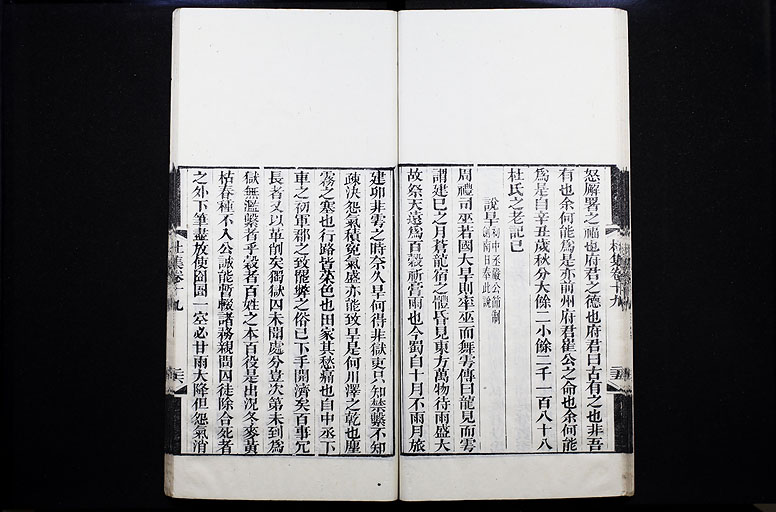 怒解署之福也府君之德也府君曰古有之也非吾
有也余何能爲是亦前州府君崔公之命也余何能
爲是日辛丑歲秋分大餘二小餘二千一百八十八
杜氏之老記已
說旱初中丞嚴公節制劍南日奉此說
周禮司巫若國大旱則率巫而舞雩傳曰龍見而雩
謂建巳之月蒼龍宿之體昏見東方萬物待雨盛大
故祭天遠爲百穀祈膏雨也今蜀自十月不雨月旅
建卯非雩之時奈久旱何得非獄吏只知禁繫不知
疎決怨氣積冤氣盛亦能致旱是何川澤之乾也塵
霧之塞也行路皆菜色也田家其愁痛也自中丞下
車之初軍郡之政罷弊之俗已下手開濟矣百事冗
長者又以革削矣獨獄囚未聞處分豈次第未到爲
獄無濫繫者乎穀者百姓之本百役是出況冬麥黃
枯春種不入公誠能暫輟諸務親問囚徒除合死者
之外下筆盡放使囹圄一空必甘雨大降但怨氣消
杜集卷十九
杜集卷十九